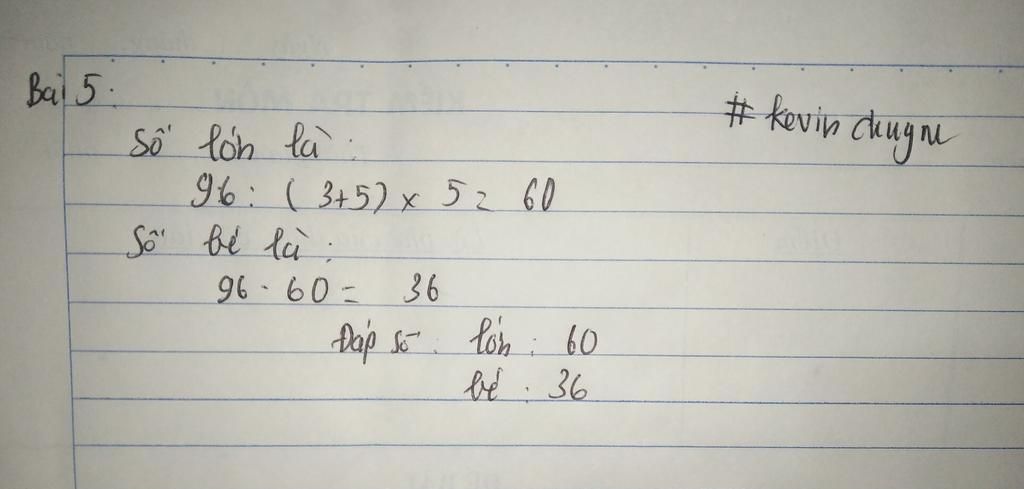 Bài 5:
# kevin chugne
Số lớn là:
96 : (3+5) x 5 = 60
Số bé là:
96 - 60 = 36
Đáp số: lớn: 60
bé: 36